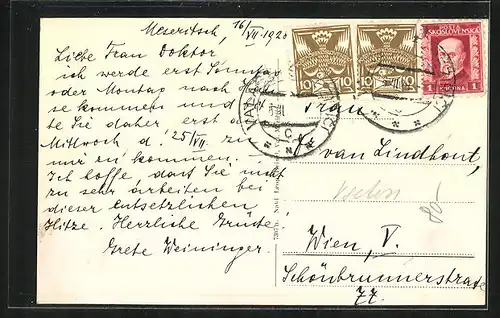 Meseritsch, 16/VII. 1928
Liebe Frau Doktor
ich werde erst Sonntag
oder Montag nach
se kommen und
te Sie daher erst
Mittwoch d. 25/VII. zu
mir zu kommen.
Ich hoffe, dass Sie nicht
zu sehr arbeiten bei
dieser entsetzlichen
Hitze. Herzliche Grüsse
Grete Weininger.
10 10
10 10
POŠTA
ČESKOSLOVENSKÁ
1 KORUNA 1
Frau
J. van Lindhout,
80-
Wien, V.
Schönbrunnerstrasse